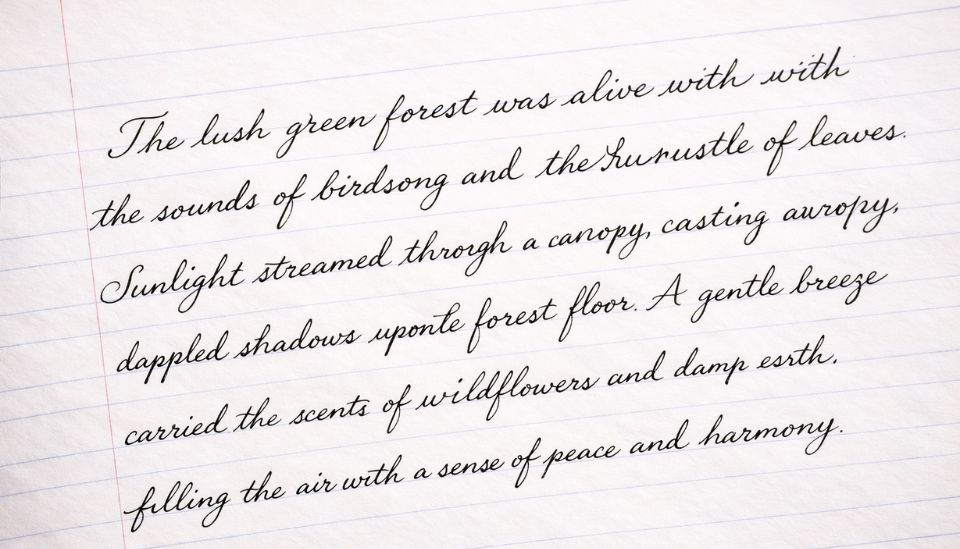 The lush green forest was alive with with
the sounds of birdsong and the hurustle of leaves.
Sunlight streamed throrgh a canopy, casting auropy,
dappled shadows uponte forest floor. A gentle breeze
carried the scents of wildflowers and damp esrth.
filling the air with a sense of peace and harmony.